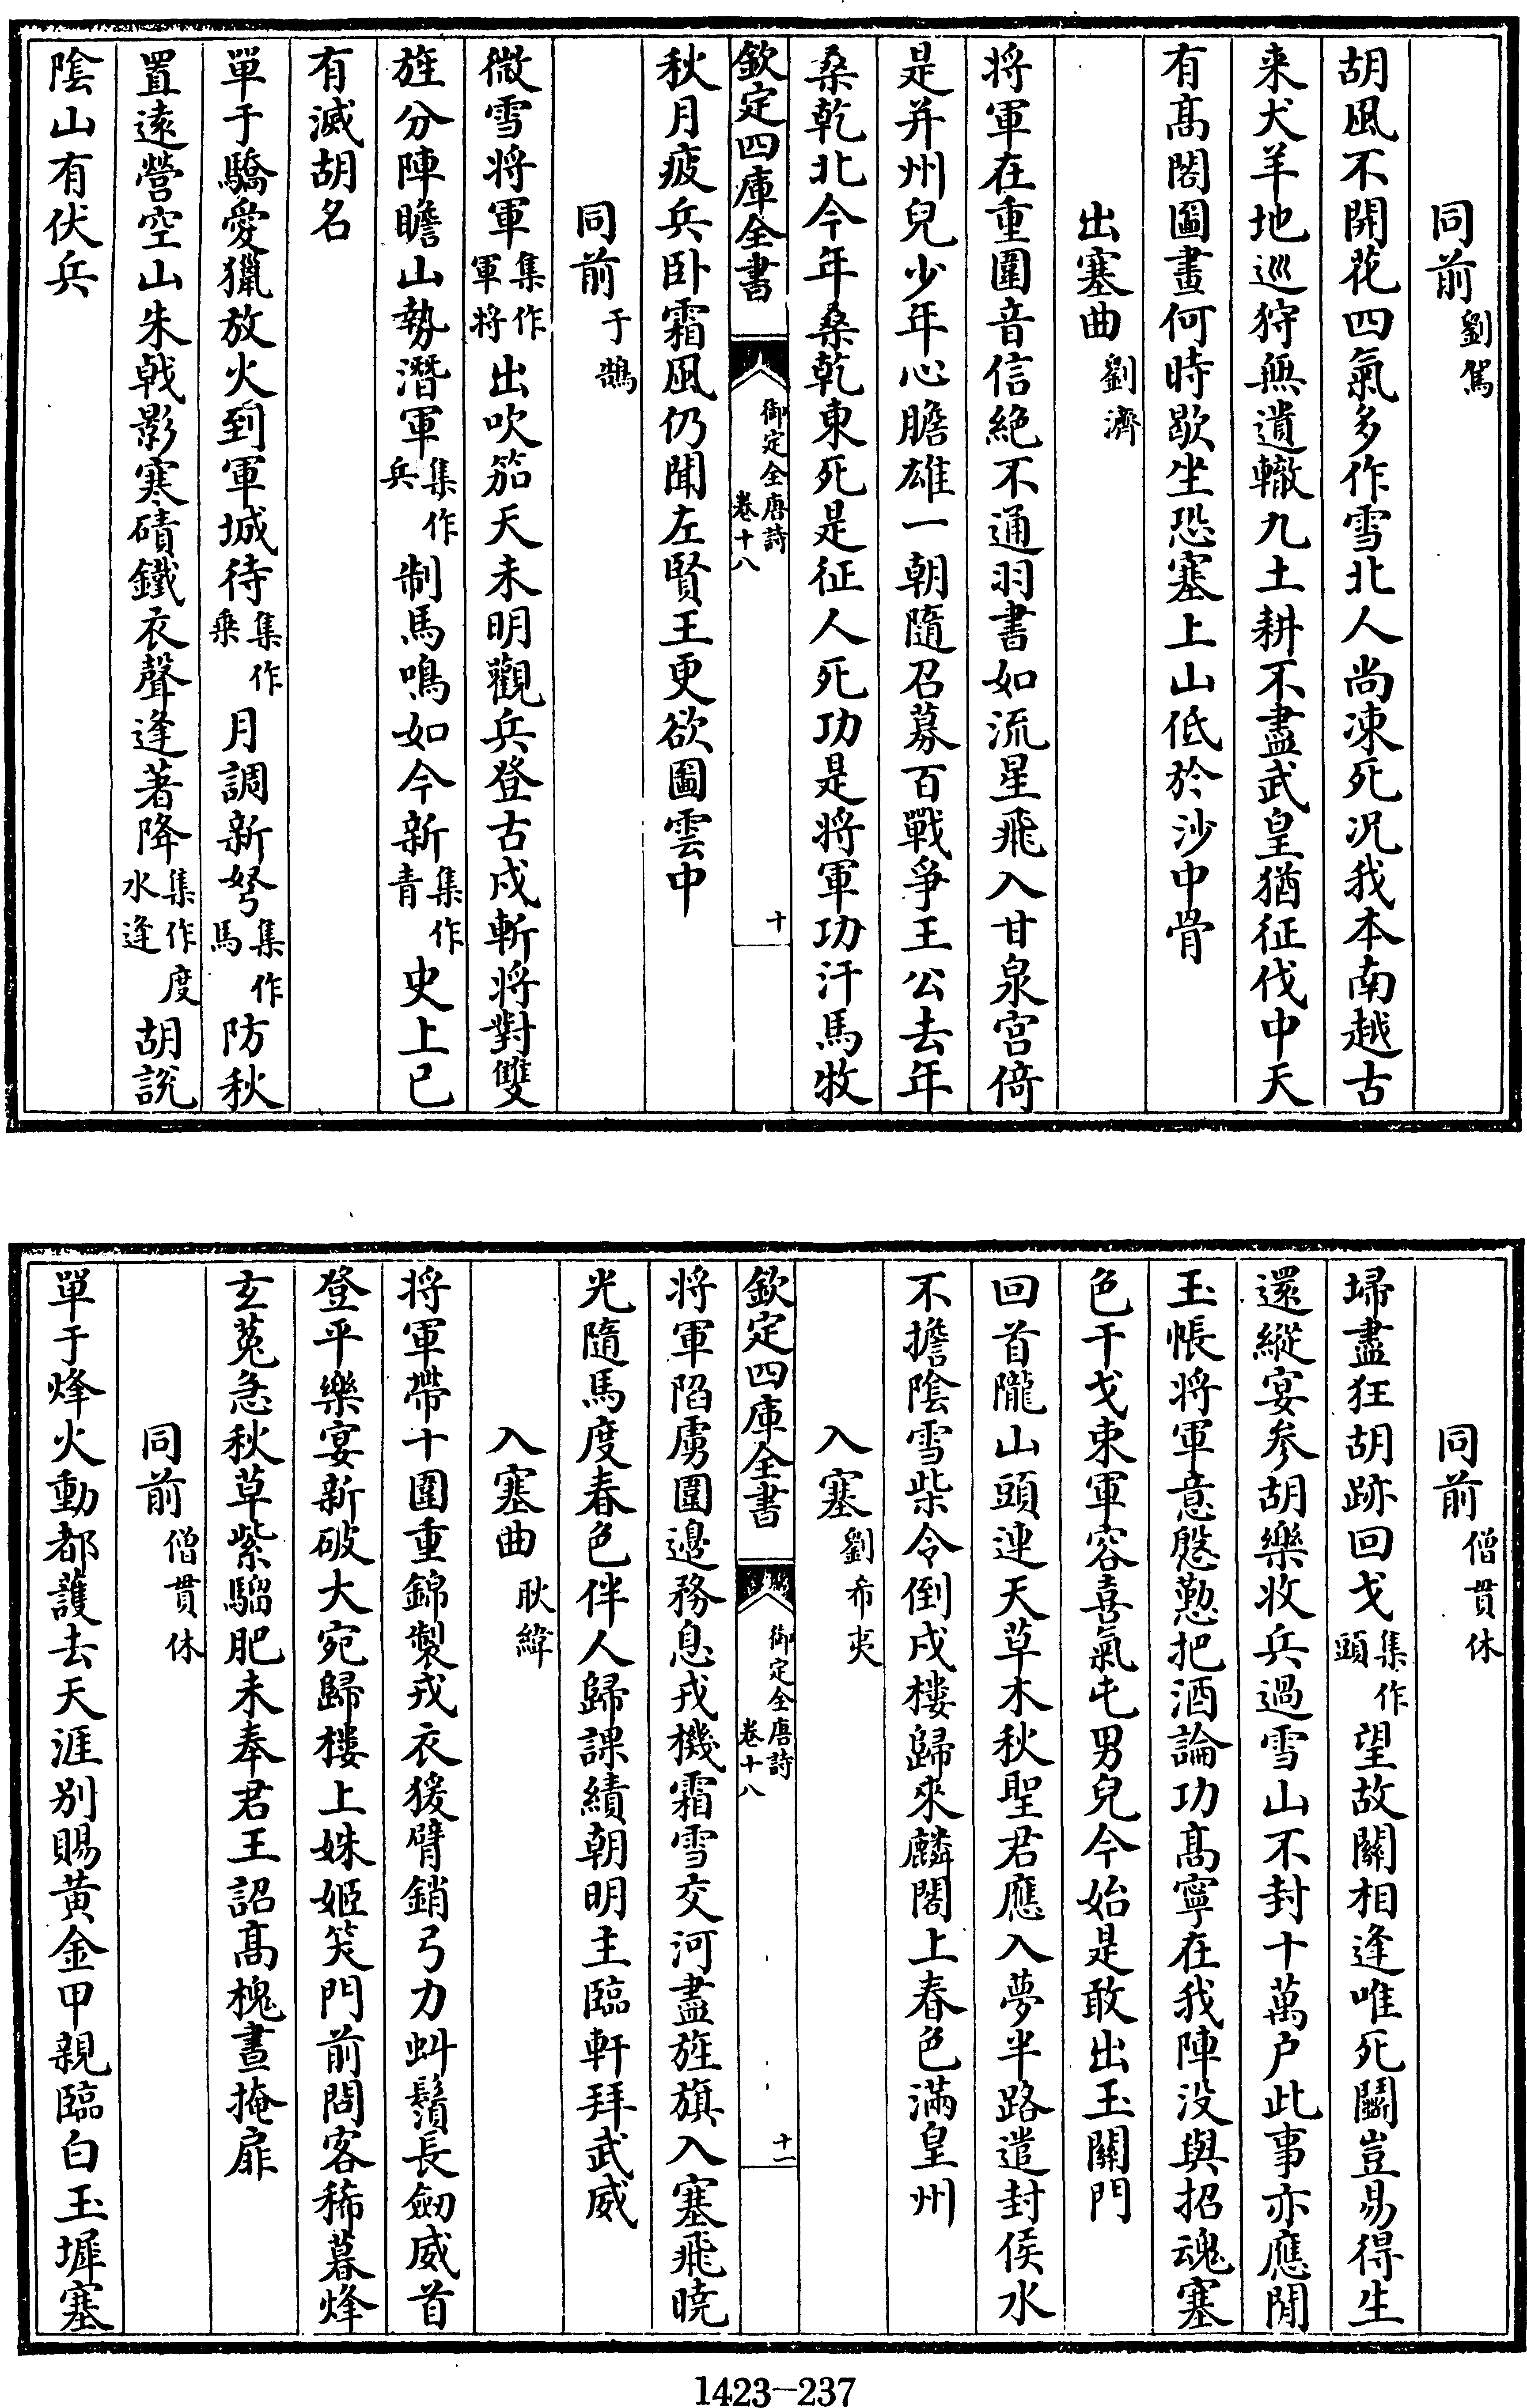 同前劉駕
胡風不開花四氣多作雪北人尚凍死况我本南越古
来犬羊地巡狩無遺轍九土耕不盡武皇猶征伐中天
有髙閣圖畫何時歇坐恐塞上山低於沙中骨
出塞曲劉濟
将軍在重圍音信絶不通羽書如流星飛入甘泉宮倚
是并州兒少年心膽雄一朝隨召募百戰爭王公去年
桑乾北今年桑乾東死是征人死功是将軍功汗馬牧
欽定四庫全書 御定全唐詩 卷十八 十
秋月疲兵卧霜風仍聞左賢王更欲圖雲中
同前于鵠
微雪将軍集作軍将出吹笳天未明觀兵登古戍斬将對雙
旌分陣瞻山勢潛軍集作兵制馬鳴如今新集作青史上已
有滅胡名
單于驕愛獵放火到軍城待集作乗月調新弩集作馬防秋
置遠營空山朱戟影寒磧鐵衣聲逢著降集作度水逢胡說
陰山有伏兵
同前僧貫休
埽盡狂胡跡回戈集作頭望故關相逢唯死鬭豈易得生
還縱宴参胡樂收兵過雪山不封十萬户此事亦應閒
玉帳将軍意慇懃把酒論功髙寧在我陣没與招魂塞
色干戈束軍容喜氣屯男兒今始是敢出玉關門
回首隴山頭連天草木秋聖君應入夢半路遣封侯水
不擔陰雪柴令倒戍樓歸來麟閣上春色滿皇州
入塞劉希夷
欽定四庫全書 御定全唐詩 卷十八 十一
将軍陷虜圍邊務息戎機霜雪交河盡旌旗入塞飛曉
光隨馬度春色伴人歸課績朝明主臨軒拜武威
入塞曲耿緯
将軍帶十圍重錦製戎衣猨臂銷弓力虯鬚長劒威首
登平樂宴新破大宛歸樓上姝姬笑門前問客稀暮烽
玄菟急秋草紫騮肥未奉君王詔髙槐晝掩扉
同前僧貫休
單于烽火動都護去天涯别賜黄金甲親臨白玉墀塞
1423—237